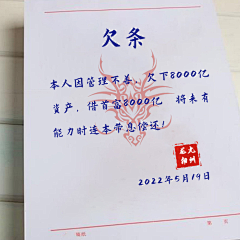 欠条
本人因管理不善，欠下8000亿
资产，借首富8000亿 将来有
能力时连本带息偿还！
2022年5月19日